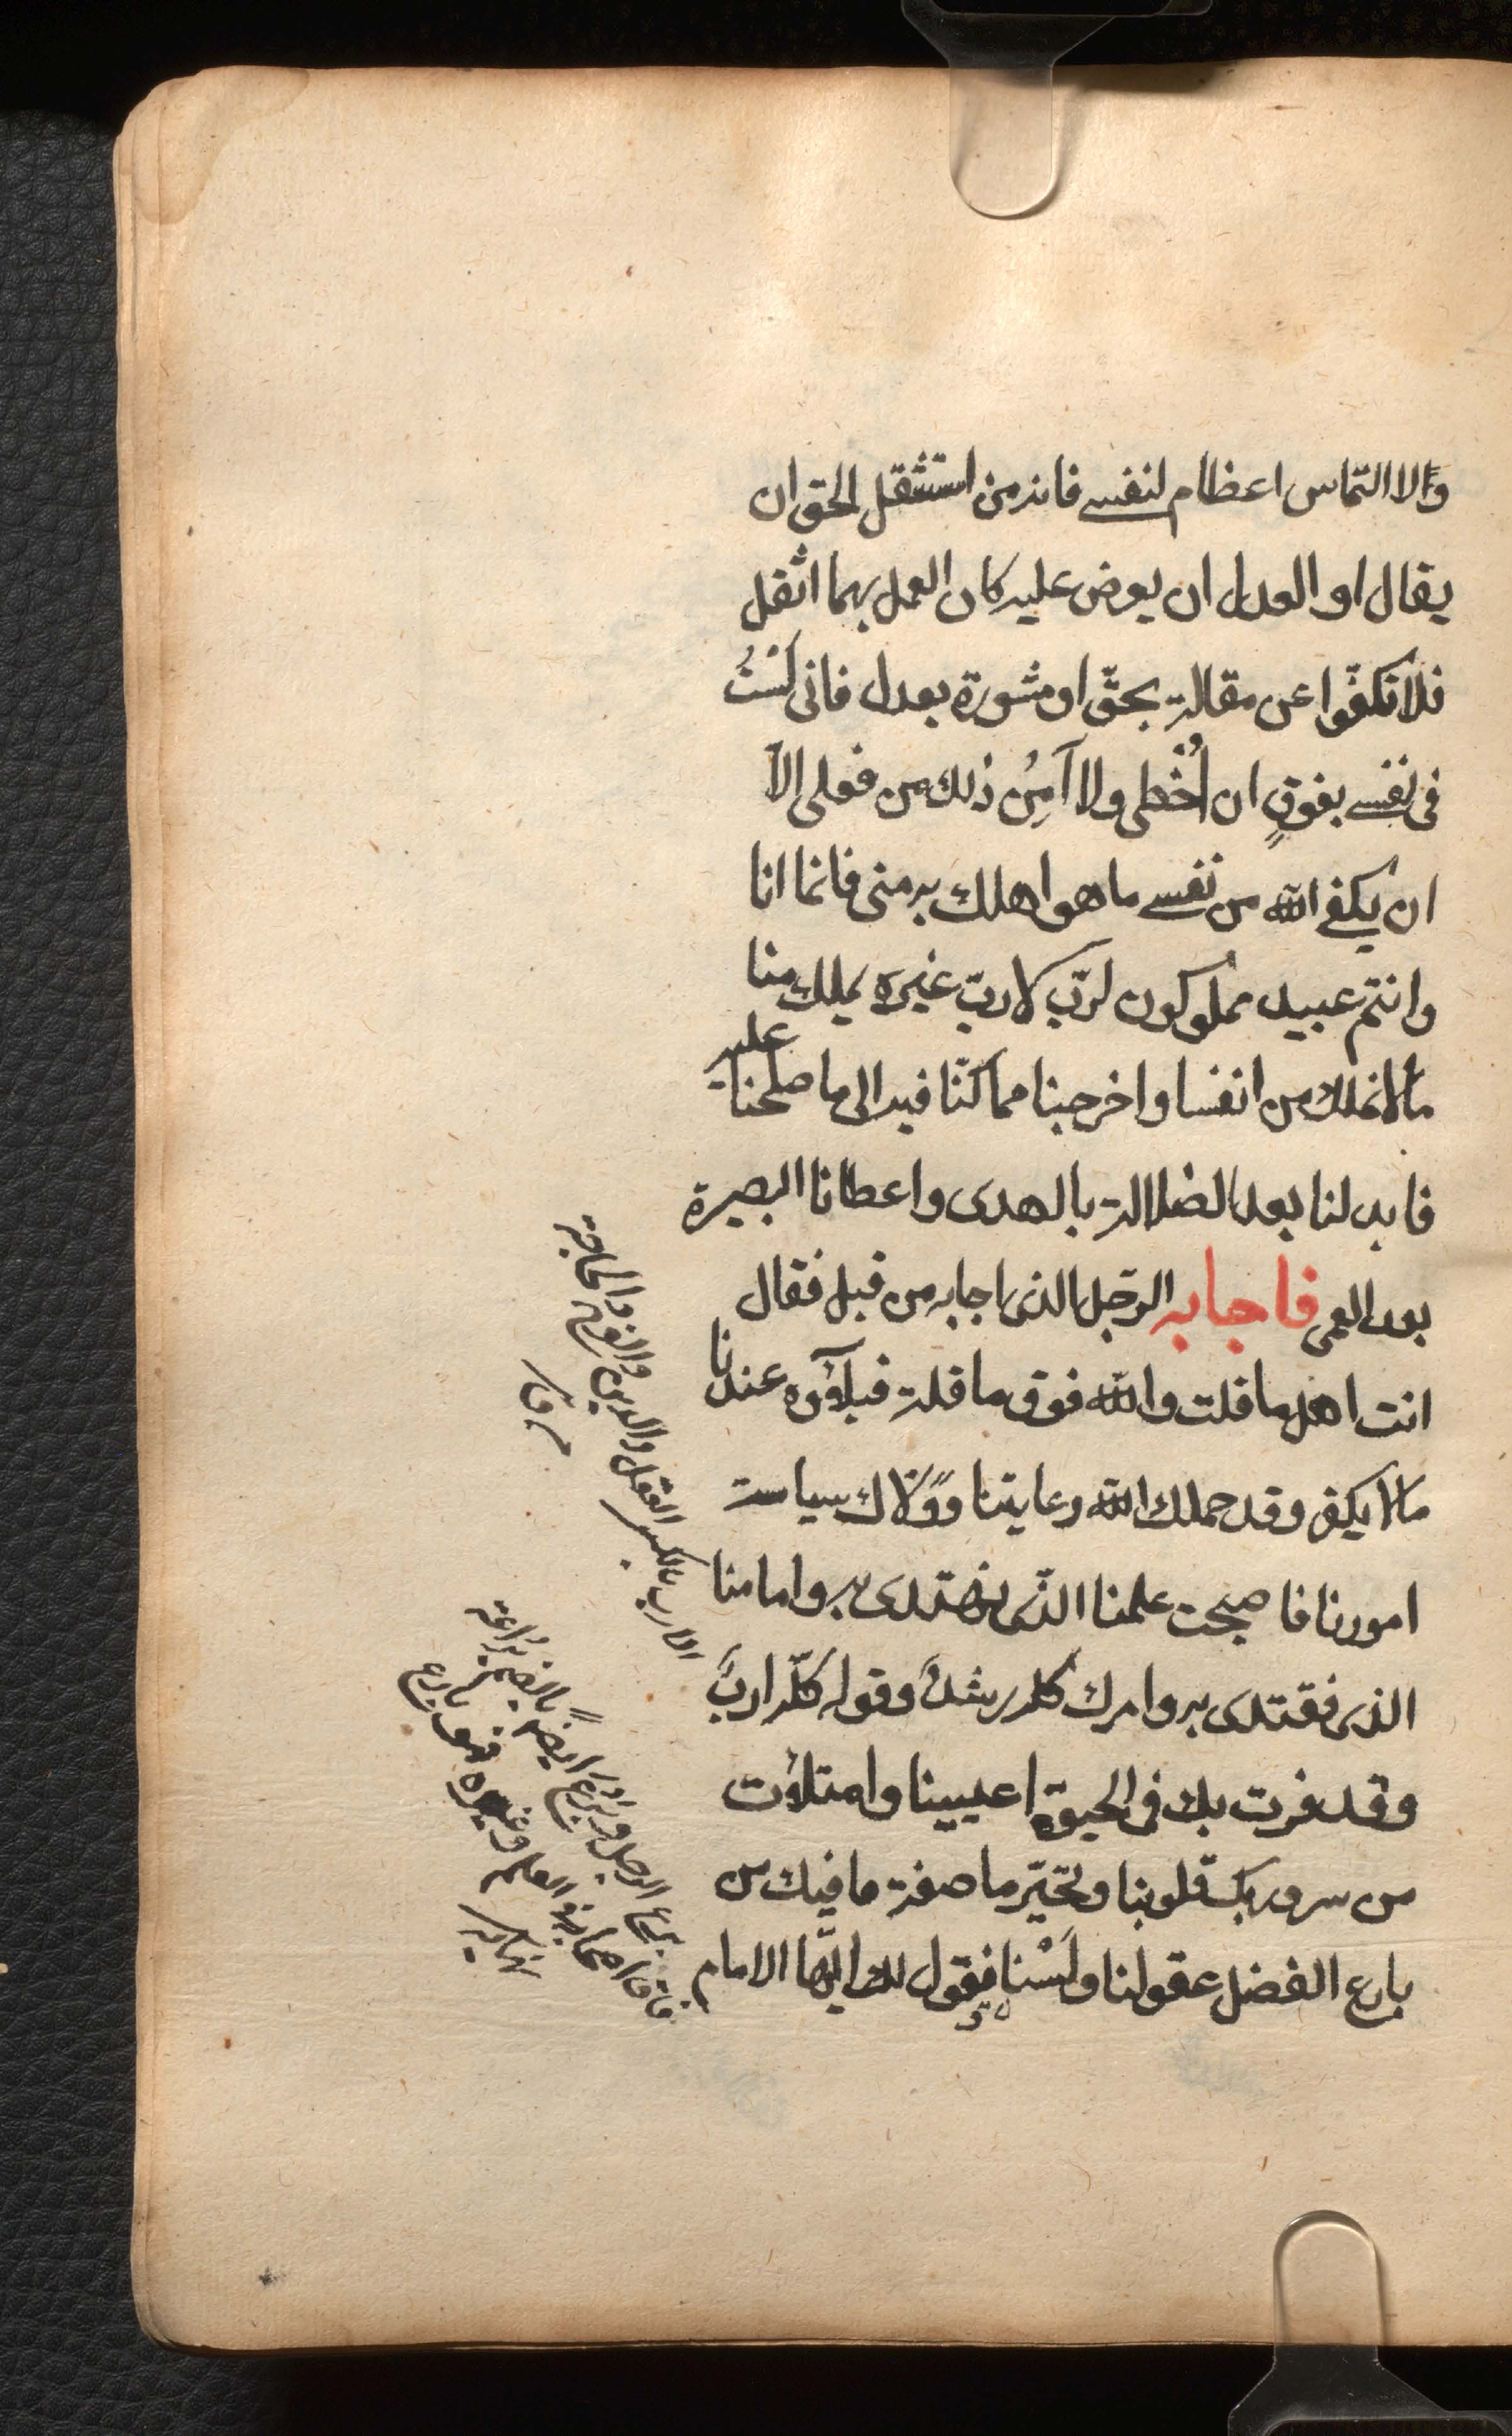 ولا التماس اعظام لنفسى فانه من استثقل الحق ان
يقال او العدل ان يعرض عليه كان العمل بهما اثقل
فلا تكفّوا عن مقالة بحقّ او مشورة بعدل فانى لَسْتُ
فى نفسى بفوقٍ ان اُخْطى ولا آمِنُ ذلك من فعلى الّا
ان يكفى الله من نفسى ما هو املك به منى فانما انا
وانتم عبيد مملوكون لربّ لا ربّ غيره يملك منا
ما لا نملك من انفسنا واخرجنا مما كنّا فيه الى ما صلحنا عليه
فابدلنا بعد الضلالة بالهدى واعطانا البصيرة
بعد العمى فاجابه الرّجل الذى اجابه من قبل فقال
انت اهل ما قلت والله فوق ما قلته فبلاؤه عندنا
ما لا يكفر وقد حملك الله رعايتنا وولّاك سياسة
امورنا فاصبحت علمنا الذّى نهتدى به وامامنا
الذى نقتدى به وامرك كله رشدٌ وقوله كلّه ادبٌ
وقد قرت بك فى الحيوة اعييننا وامتلأت
من سرور بك قلوبنا وتحيّر ما صفة ما فيك من
بارع الفضل عقولنا ولَسْنا نقول لك ايّها الامام
الارب بالكسر العقل والدين والفرج والحاجة
برع الرجل وبَرُع ايضاً بالضم بَراعة
فاق اصحابه فى العلم وغيره فهو بارع